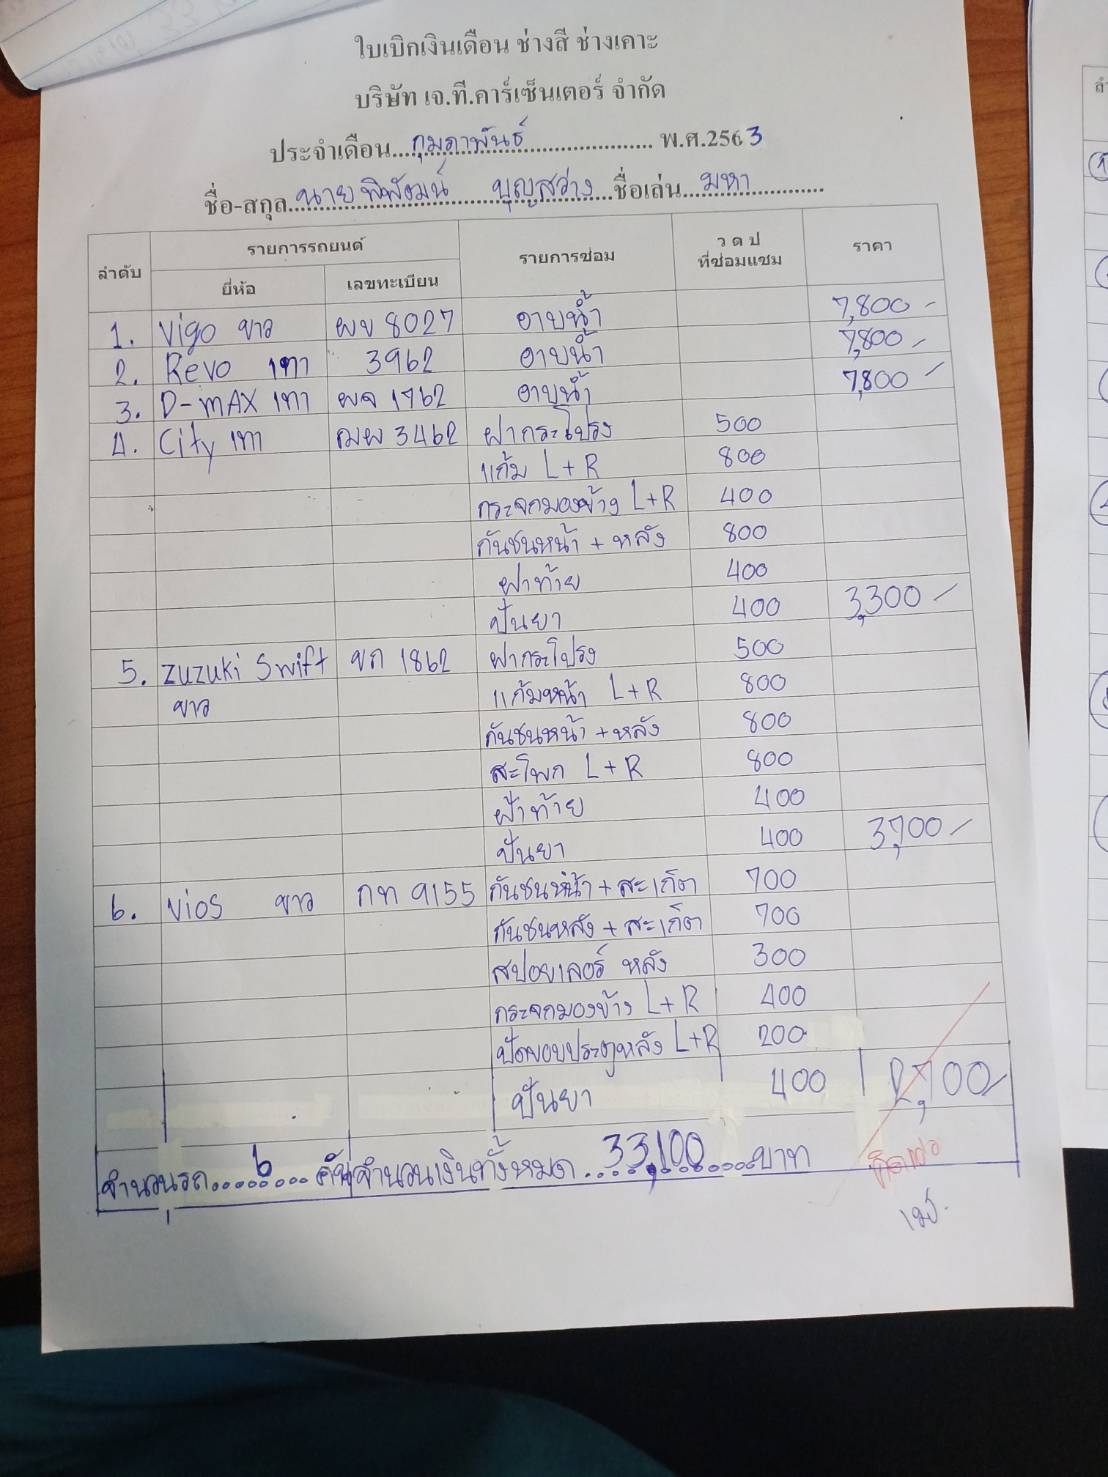 ใบเบิกเงินเดือน ช่างสี ช่างเคาะ
บริษัท เจ.ที.คาร์เซ็นเตอร์ จำกัด
ประจำเดือน....กุมภาพันธ์.................... พ.ศ.2563
ชื่อ-สกุล..นาย พิพัฒน์ บุญสว่าง...ชื่อเล่น...มหา..............
ลำดับ รายการรถยนต์ รายการซ่อม ว ด ป ที่ซ่อมแซม ราคา
ยี่ห้อ เลขทะเบียน
1. Vigo ขาว ผข 8027 อาบน้ำ 7,800 -
2. Revo เทา 3962 อาบน้ำ 7,800 -
3. D-MAX เทา ผจ 1762 อาบน้ำ 7,800 -
4. City เทา ฌผ 3462 ฝากระโปรง 500
แก้ม L+R 800
กระจกมองข้าง L+R 400
กันชนหน้า + หลัง 800
ฝาท้าย 400
ปั่นยา 400 3,300 -
5. Zuzuki Swift ขก 1862 ฝากระโปรง 500
ขาว แก้มหน้า L+R 800
กันชนหน้า + หลัง 800
สะโพก L+R 800
ฝาท้าย 400
ปั่นยา 400 3,700 -
6. Vios ขาว กท 9155 กันชนหน้า + สะเก็ต 700
กันชนหลัง + สะเก็ต 700
สปอยเลอร์ หลัง 300
กระจกมองข้าง L+R 400
ปัดขอบประตูหลัง L+R 200
ปั่นยา 400 2,700 -
จำนวนรถ.......6.....คัน จำนวนเงินทั้งหมด...33,100.....บาท